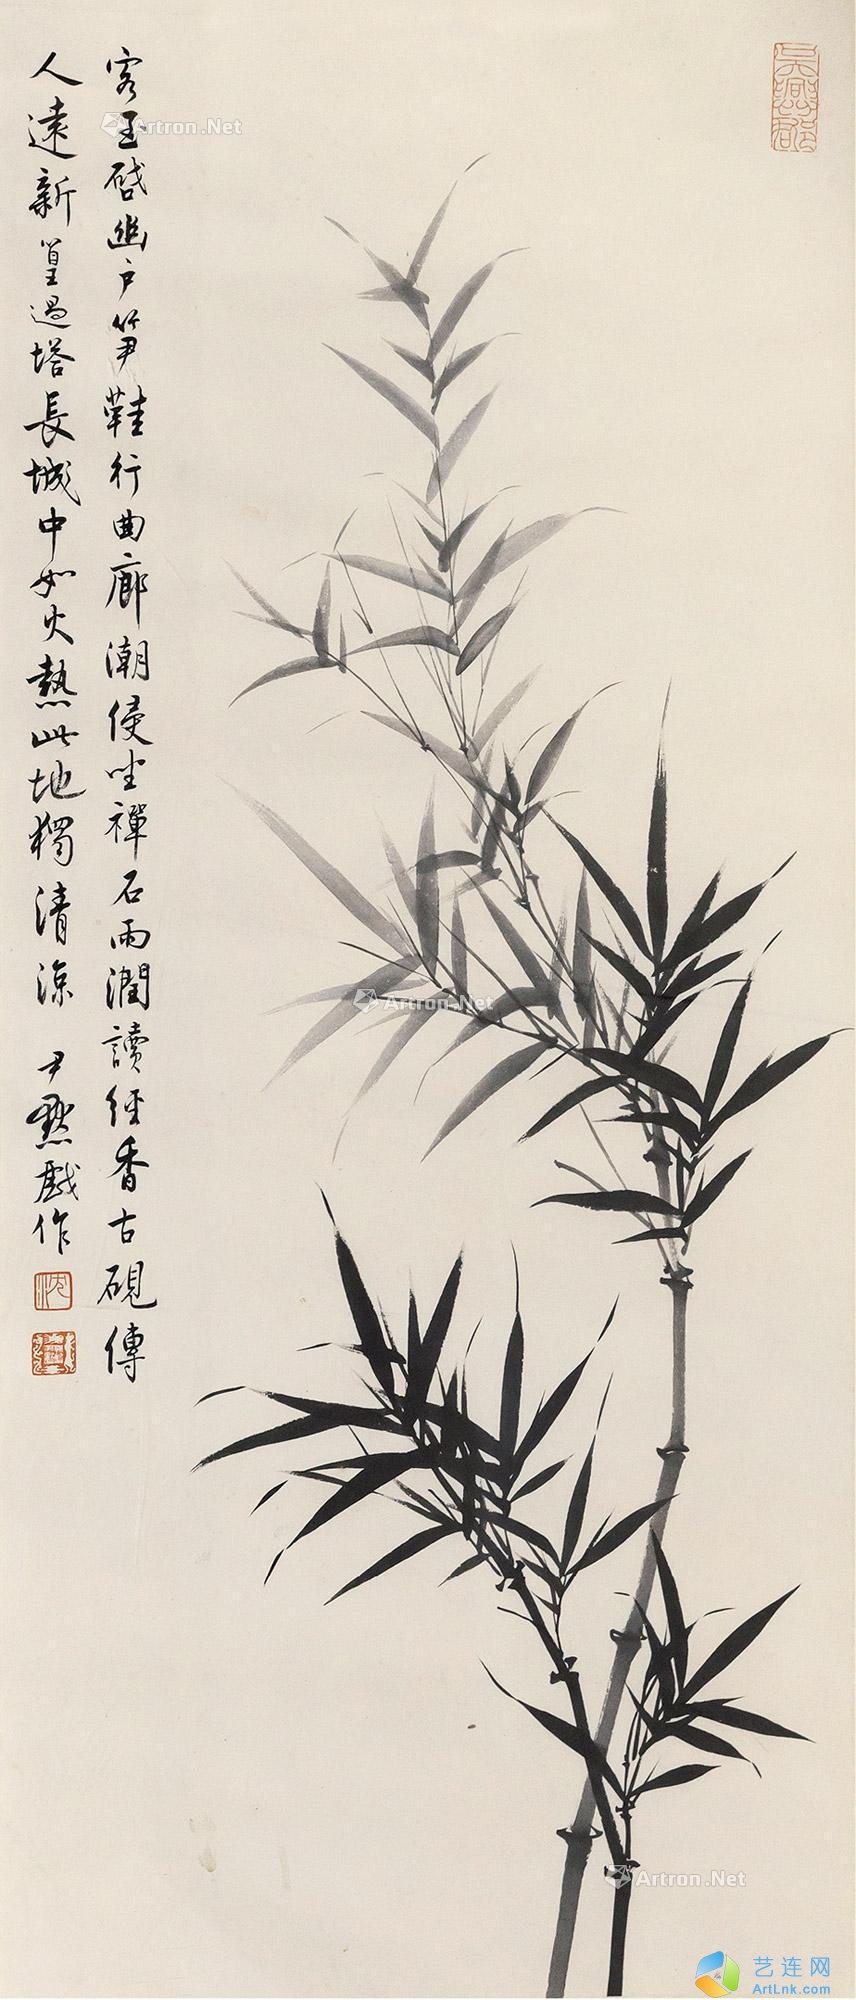 客至啟幽户笋鞋行曲廊潮侵坐禪石雨潤讀經香古硯傳
人遠新篁過塔長城中如火熱此地獨清涼 尹默戲作
沈
Artron.Net
Artron.Net
Artron.Net
艺连网
ArtLnk.com